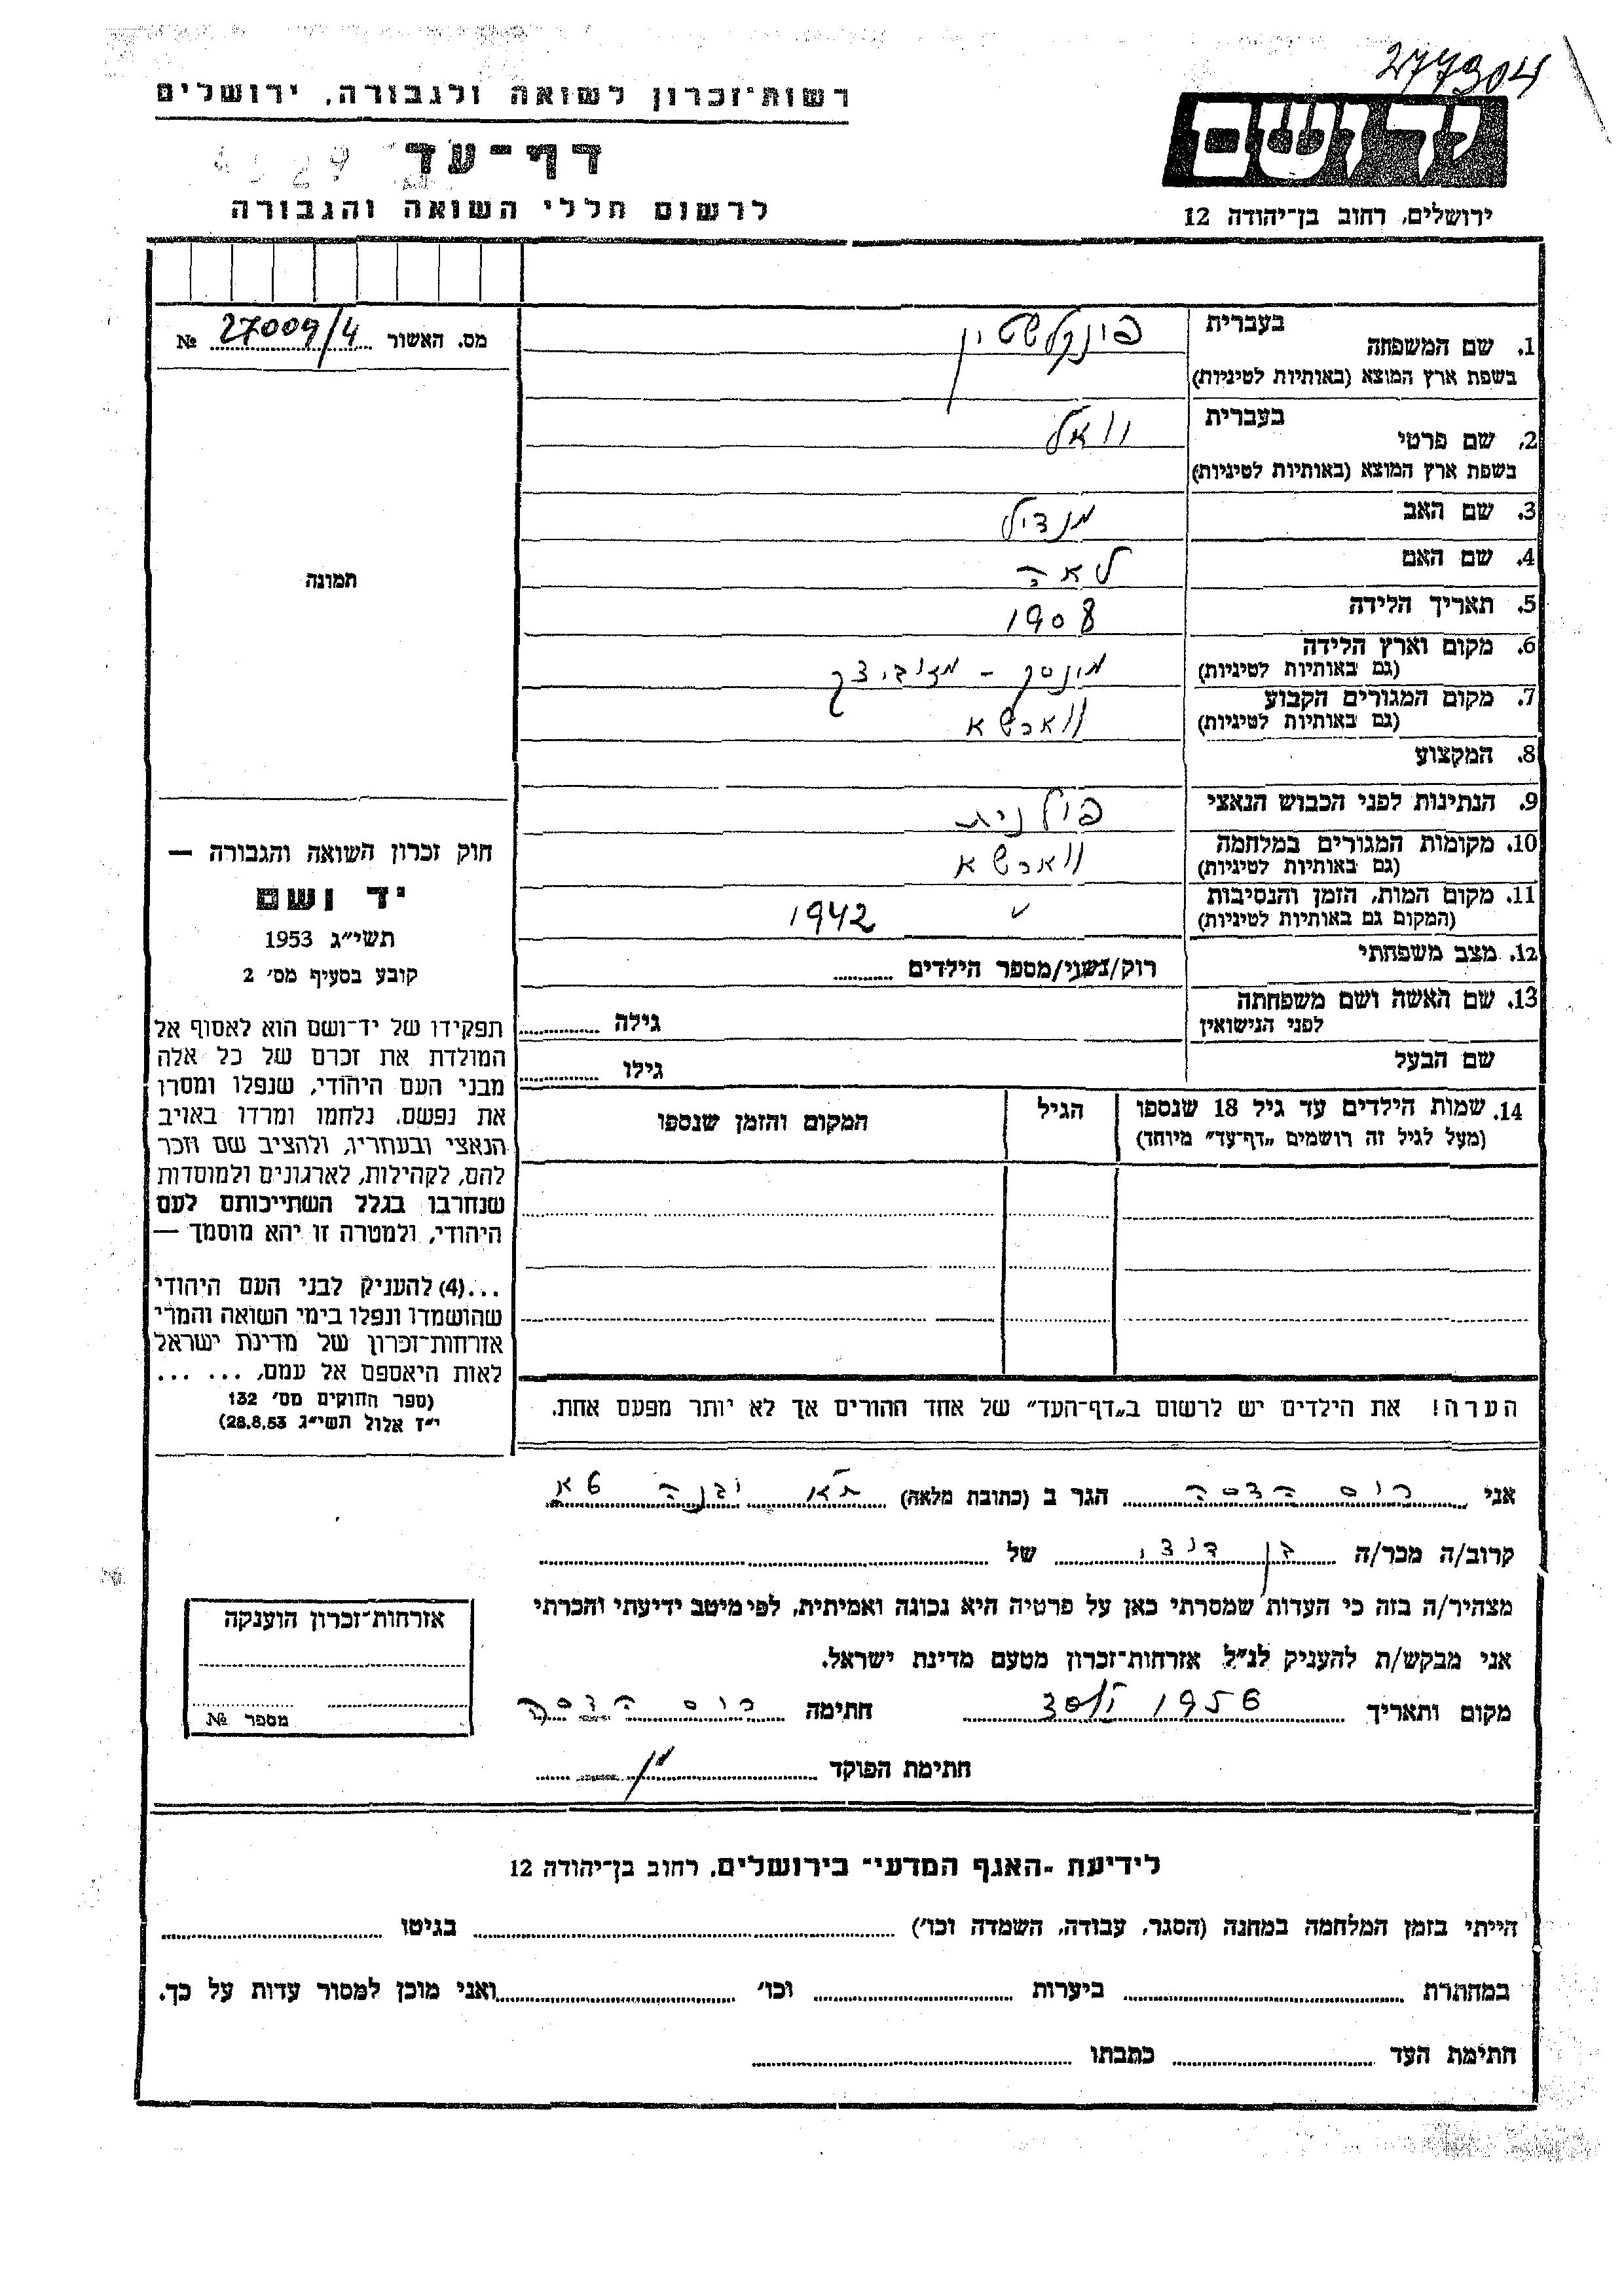 277304
רשות־זכרון לשואה ולגבורה, ירושלים
יד ושם
דף־עד
לרשום חללי השואה והגבורה
ירושלים, רחוב בן־יהודה 12
מס. האשור 27009/4 №
תמונה
בעברית
1. שם המשפחה פינקלשטיין
בשפת ארץ המוצא (באותיות לטיניות)
בעברית
2. שם פרטי
בשפת ארץ המוצא (באותיות לטיניות)
3. שם האב מנדיל
4. שם האם לאה
5. תאריך הלידה 1908
6. מקום וארץ הלידה מינסק - מזוביצק
(גם באותיות לטיניות)
7. מקום המגורים הקבוע ווארשא
(גם באותיות לטיניות)
8. המקצוע
9. הנתינות לפני הכבוש הנאצי פולנית
10. מקומות המגורים במלחמה ווארשא
(גם באותיות לטיניות)
11. מקום המות, הזמן והנסיבות 1942
(המקום גם באותיות לטיניות)
12. מצב משפחתי רוק/נשוי/מספר הילדים
13. שם האשה ושם משפחתה
לפני הנישואין גילה
שם הבעל גילו
14. שמות הילדים עד גיל 18 שנספו הגיל המקום והזמן שנספו
(מעל לגיל זה רושמים „דף־עד״ מיוחד)
חוק זכרון השואה והגבורה —
יד ושם
תשי״ג 1953
קובע בסעיף מס׳ 2
תפקידו של יד־ושם הוא לאסוף אל
המולדת את זכרם של כל אלה
מבני העם היהודי, שנפלו ומסרו
את נפשם, נלחמו ומרדו באויב
הנאצי ובעוזריו, ולהציב שם וזכר
להם, לקהילות, לארגונים ולמוסדות
שנחרבו בגלל השתייכותם לעם
היהודי, ולמטרה זו יהא מוסמך —
...(4) להעניק לבני העם היהודי
שהושמדו ונפלו בימי השואה והמרי
אזרחות־זכרון של מדינת ישראל
לאות היאספם אל עמם, ... ...
(ספר החוקים מס׳ 132
י״ז אלול תשי״ג 28.8.53)
הערה! את הילדים יש לרשום ב„דף־העד״ של אחד ההורים אך לא יותר מפעם אחת.
אני רוס הדסה הגר ב (כתובת מלאה) יבנה
קרוב/ה מכר/ה בן דודי של
מצהיר/ה בזה כי העדות שמסרתי כאן על פרטיה היא נכונה ואמיתית, לפי מיטב ידיעתי והכרתי
אני מבקש/ת להעניק לנ״ל אזרחות־זכרון מטעם מדינת ישראל.
מקום ותאריך 1956 חתימה רוס הדסה
חתימת הפוקד
אזרחות־זכרון הוענקה
מספר №
לידיעת ״האגף המדעי״ בירושלים, רחוב בן־יהודה 12
הייתי בזמן המלחמה במחנה (הסגר, עבודה, השמדה וכו׳) בגיטו
במחתרת ביערות וכו׳ ואני מוכן למסור עדות על כך.
חתימת העד כתבתו